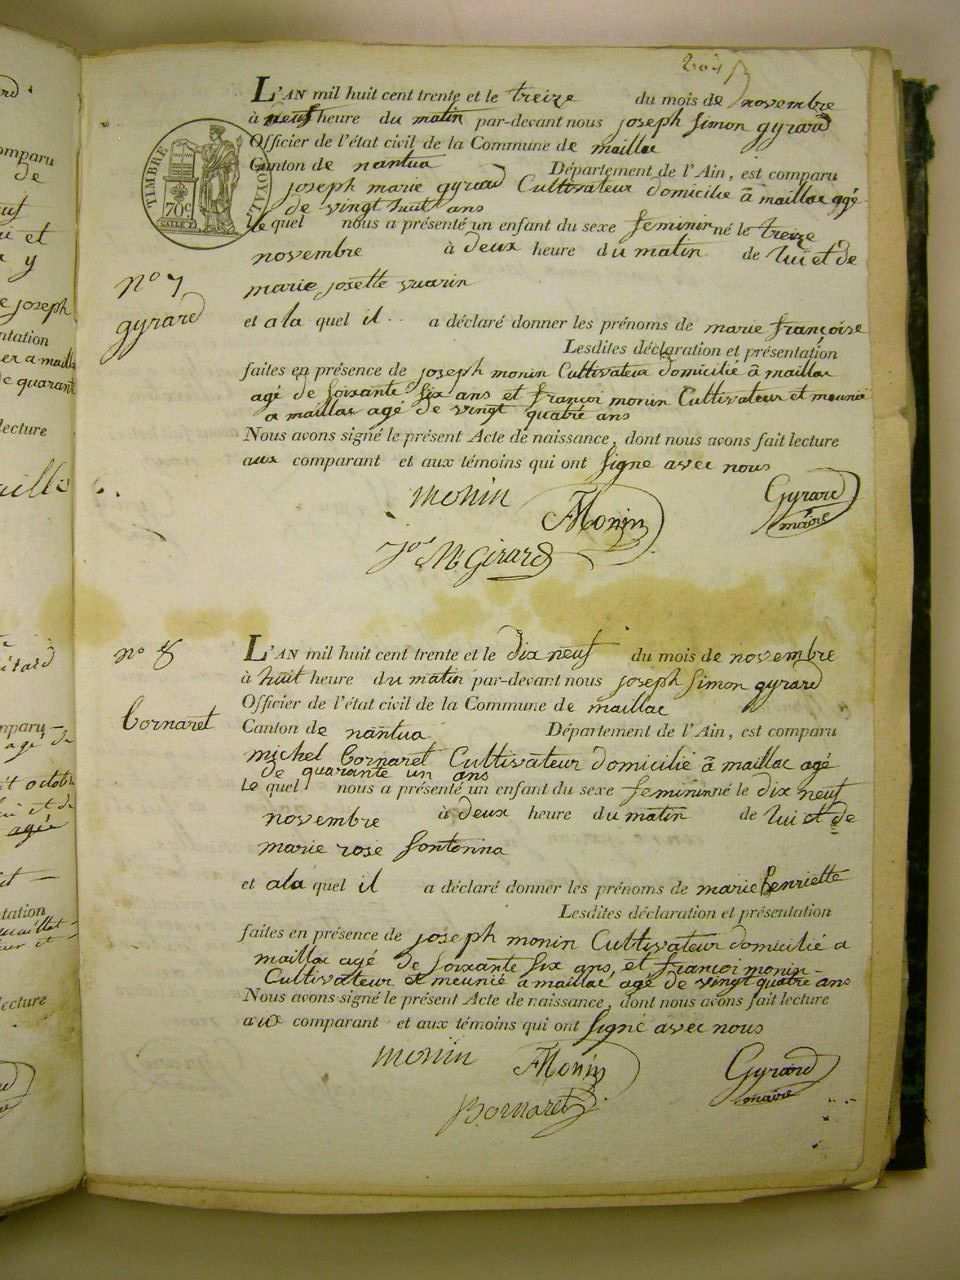 L'AN mil huit cent trente et le treize du mois de novembre
à neuf heure du matin par-devant nous joseph simon gyrard
Officier de l'état civil de la Commune de maillac
Canton de nantua Département de l'Ain, est comparu
joseph marie gyrard Cultivateur domicilié à maillac agé
de vingt huit ans
Le quel nous a présenté un enfant du sexe feminin né le treize
novembre à deux heure du matin de lui et de
marie josette vuarin
et a la quel il a déclaré donner les prénoms de marie françoise
Lesdites déclaration et présentation
faites en présence de joseph monin Cultivateur domicilié a maillac
agé de soixante six ans et françoi monin Cultivateur et meunié
a maillac agé de vingt quatre ans
Nous avons signé le présent Acte de naissance, dont nous avons fait lecture
aux comparant et aux témoins qui ont signe avec nous
monin
F Monin
Gyrard
maire
Jos M Girard
TIMBRE ROYAL
70 c
n° 7
gyrard
n° 8
bornaret
L'AN mil huit cent trente et le dix neuf du mois de novembre
à huit heure du matin par-devant nous joseph simon gyrard
Officier de l'état civil de la Commune de maillac
Canton de nantua Département de l'Ain, est comparu
michel bornaret Cultivateur domicilié à maillac agé
de quarante un ans
Le quel nous a présenté un enfant du sexe feminin né le dix neuf
novembre à deux heure du matin de lui et de
marie rose fontenna
et a la quel il a déclaré donner les prénoms de marie henriette
Lesdites déclaration et présentation
faites en présence de joseph monin Cultivateur domicilié a
maillac agé de soixante six ans, et françoi monin
Cultivateur et meunié a maillac agé de vingt quatre ans
Nous avons signé le présent Acte de naissance, dont nous avons fait lecture
aux comparant et aux témoins qui ont signé avec nous
monin
F Monin
Gyrard
maire
Bornaret